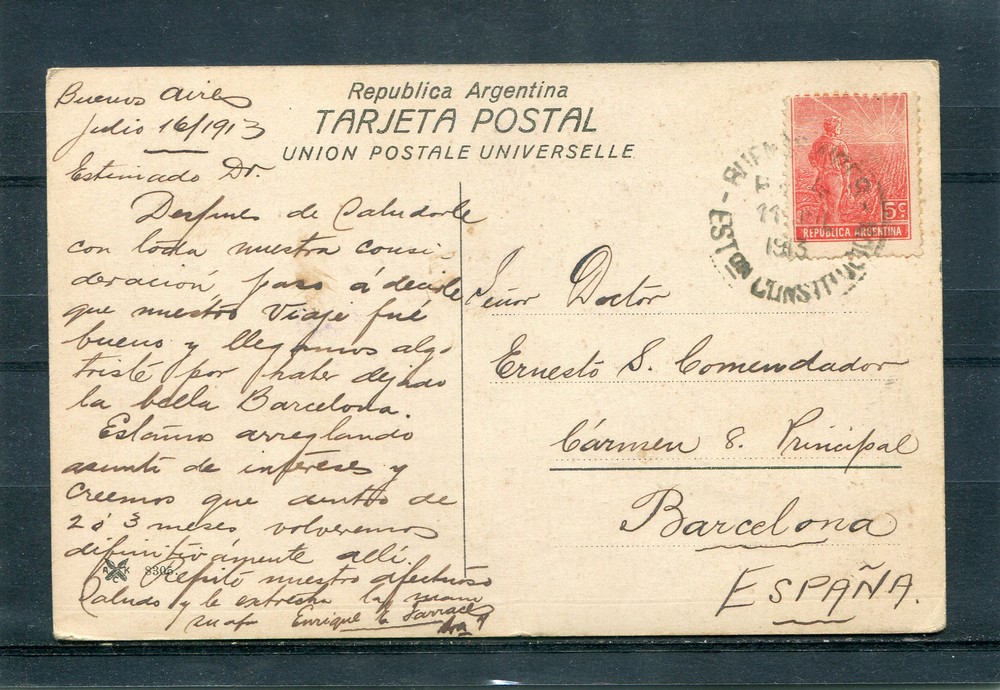 Buenos Aires
Julio 16/1913
Republica Argentina
TARJETA POSTAL
UNION POSTALE UNIVERSELLE
5c
REPUBLICA ARGENTINA
BUENOS AIRES
1913
EST ON CONSTITUCION
Estimado Dr.
Despues de Saludarle
con toda nuestra consi-
deración paso á decirle
que nuestro Viaje fué
bueno y llegamos algo
triste por haber dejado
la bella Barcelona.
Estamos arreglando
asunto de intereses y
creemos que dentro de
2 ó 3 meses volveremos
difinitivamente allí.
Repito nuestro afectuoso
Saludo y le estrecha la mano
Enrique
A C K 8305.
Señor Doctor
Ernesto S. Comendador
Cármen 8. Principal
Barcelona
ESPAÑA.